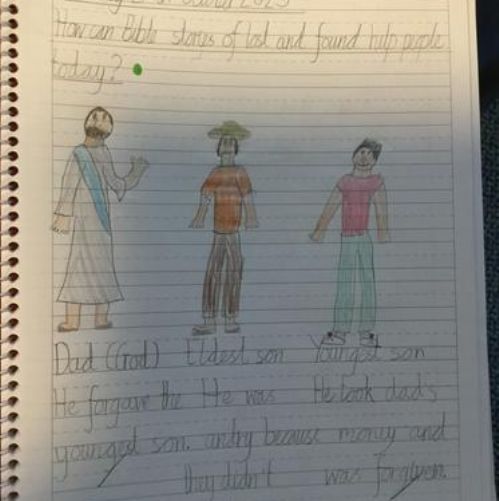 October 2023
How can Bible stories of lost and found help people
today?
Dad (God) Eldest son Youngest son
He forgave the He was He took dad's
youngest son. angry because money and
they didn't was forgiven.